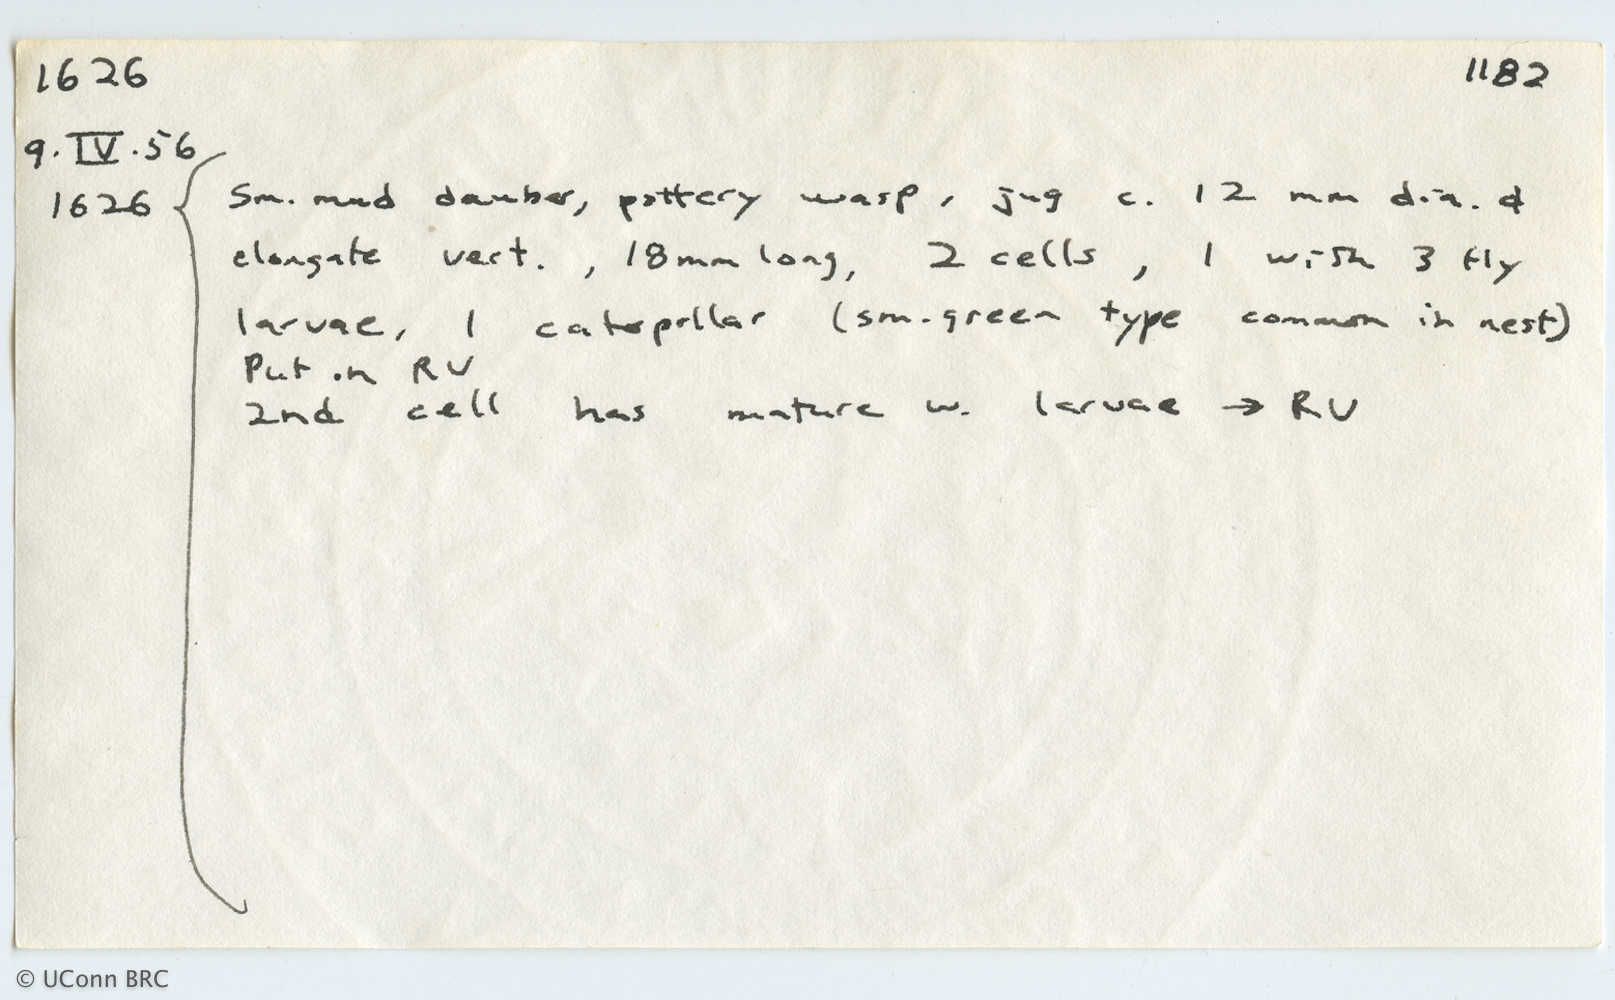 1626
1182
9.IV.56
1626
Sm. mud dauber, pottery wasp, jug c. 12 mm dia. &
elongate vert., 18mm long, 2 cells, 1 with 3 fly
larvae, 1 caterpillar (sm. green type common in nest)
Put in RV
2nd cell has mature w. larvae → RV
© UConn BRC